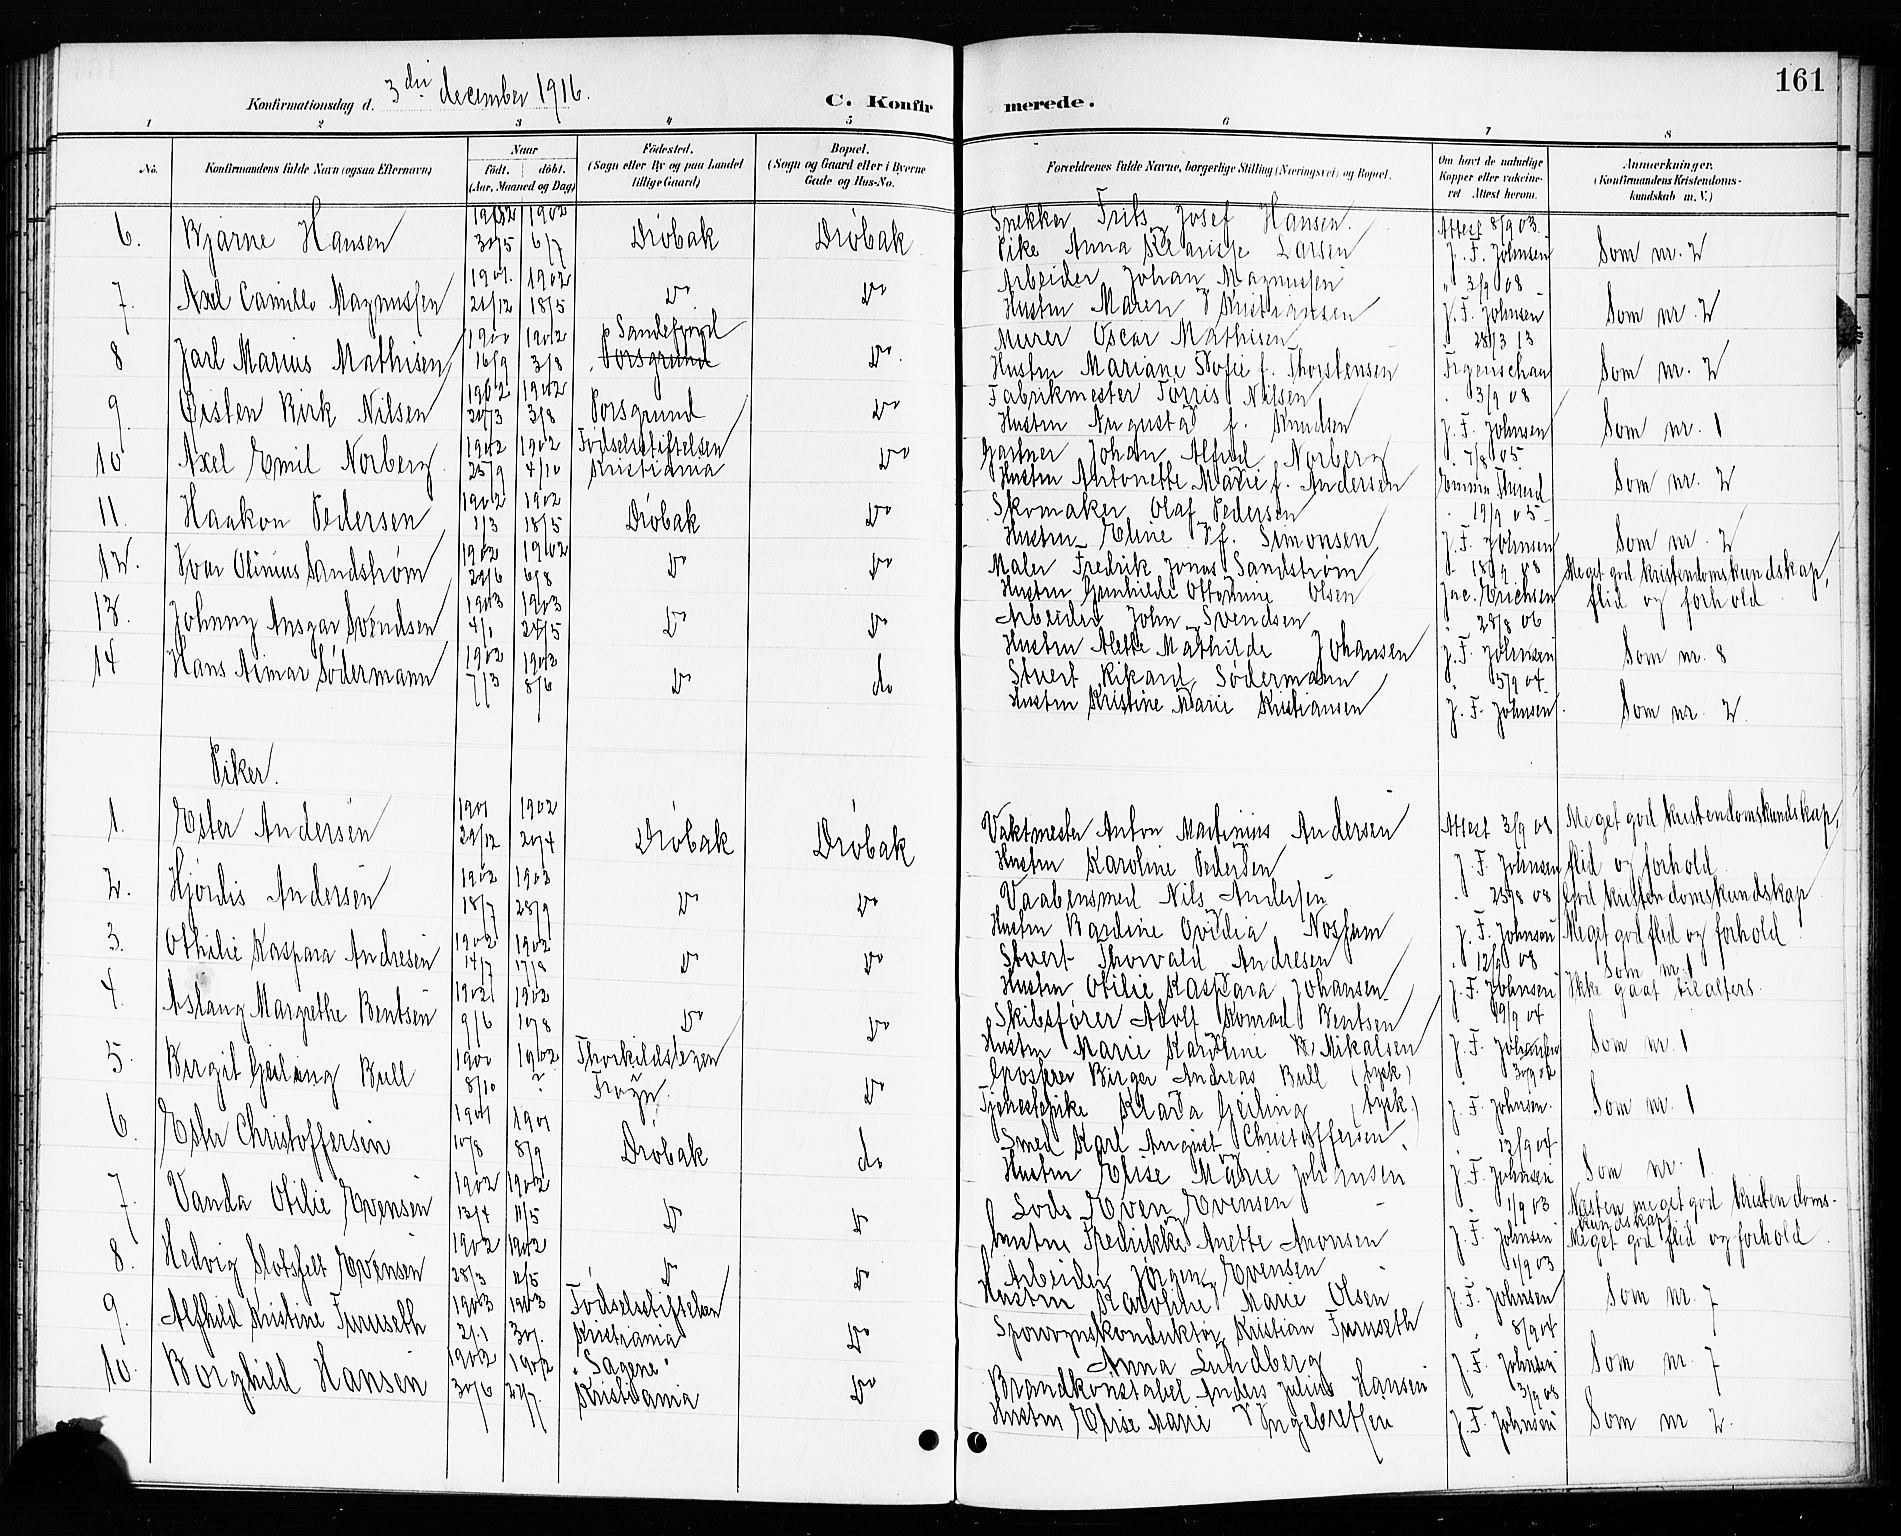 161
Konfirmationsdag d. 3die december 1916.
C. Konfirmerede.
1 2 3 4 5 6 7 8
No. Konfirmandens fulde Navn (ogsaa Efternavn) Naar født. døbt. (Aar, Maaned og Dag) Fødested. (Sogn eller By og paa Landet tillige Gaard) Bopæl. (Sogn og Gaard eller i Byerne Gade og Hus-No. Forældrenes fulde Navne, borgerlige Stilling (Næringsvei) og Bopæl. Om havt de naturlige Kopper eller vaccineret Attest herom. Anmærkninger. (Konfirmandens Kristendomskundskab m. V.)
6. Bjarne Hansen 1902 30/5 1902 6/7 Drøbak Drøbak Snekker Frits Josef Hansen. Attest 8/9 03.
Pike Anna Larsen J. F. Johnsen Som nr. 2
7. Axel Camillo Magnussen 1901. 21/12 1902 18/5 Do Do Arbeider Johan Magnussen " 3/9 08
Hustru Maren Kristiansen J. F. Johnsen Som nr. 2
8 Jarl Marius Mathisen 1900 16/9 1902 3/8 Sandefjord Porsgrund Do. Murer Oscar Mathisen 28/3 13
Hustru Mariane Sofie f. Thorstensen Som nr. 2
9. Øisten Birk Nilsen 1902 1902 3/8 Porsgrund Do Fabrikmester Tørris Nilsen 3/9 08
Hustru Augusta f. Knudsen J. F. Johnsen Som nr. 1
10 Axel Emil Norberg 1902 25/9 1902 4/10 Fødselsstiftelsen Kristiania Do Gartner Johan Alfred Norberg 7/8 05
Hustru Antonette Marie f. Andersen Som nr. 2
11. Haakon Pedersen 1902 1/3 1902 18/5 Drøbak Do Skomaker Olaf Pedersen 19/9 05
Hustru Eline f. Simonsen J. F. Johnsen Som nr. 2
12. Ivar Olinius Sandstrøm 1902 1902 6/8 Do Do Maler Fredrik Jonas Sandstrøm 18/9 08 Meget god kristendomskundskap,
Hustru Gunhilde Olsen Jac. Erichsen flid og forhold
13. Johnny Ansgar Svendsen 1903 4/1 1903 24/5 Do Do Arbeider John Svendsen 28/8 06
Hustru Alette Mathilde Johansen J. F. Johnsen Som nr. 8
14 Hans Aimar Sødermann 1902 7/3 1902 8/6 Do do Stuert Rikard Sødermann 5/9 04
Hustru Kristine Marie Kristiansen J. F. Johnsen Som nr. 2.
Piker.
1. Ester Andersen 1901 29/12 1902 20/4 Drøbak Drøbak Vaktmester Anton Martinius Andersen Attest 3/9 08 Meget god kristendomskundskap,
Hustru Karoline Pedersen J. F. Johnsen flid og forhold
2. Hjørdis Andersen 1902 18/7 1902 28/9 Do Do Vaabensmed Nils Andersen 25/8 08 God kristendomskundskap
Hustru Bardine Ovidia J. F. Johnsen Meget god flid og forhold
3. Othilie Kaspara Andresen 1902 14/7 1902 17/8 Do Do Stuert Thorvald Andresen 12/9 08 Som nr. 1
Hustru Otilie Kaspara Johansen J. F. Johnsen Ikke gaat til alters.
4. Aslaug Margrethe Bentsen 1902 9/6 1902 10/8 Do Do Skibsfører Adolf Konrad Bentsen 19/9 04
Hustru Marie Karoline Mikalsen J. F. Johnsen Som nr. 1
5. Birgit Geiling Bull 1900 8/10 1902 ? Frogn. Do Grosserer Birger Andreas Bull (tysk)
Tjenestepike Klara Geiling (tysk.) J. F. Johnsen. Som nr. 1
6. Ester Christoffersen 1901 10/8 1901 8/9 Drøbak do Smed Karl August Christoffersen. 12/9 04
Hustru Elise Marie Johansen J. F. Johnsen Som nr. 1
7. Vanda Otilie Evensen 1902 13/4 1902 11/5 Do Do Lods Even Evensen 1/9 03 Næsten meget god kristendomskundskap
Hustru Fredrikke Anette Aronsen J. F. Johnsen Meget god flid og forhold.
8. Hedvig Slotsfelt Evensen 1902 28/3 1902 11/5 Do Do Arbeider Jørgen Evensen 1/9 03
Hustru Karoline Marie Olsen J. F. Johnsen Som nr. 7
9. Alfhild Kristine Furuseth 1903 1903 Fødselsstiftelsen Kristiania Do Sporvognskonduktør Kristian Furuseth 8/9 04
Anna Lundberg J. F. Johnsen Som nr. 7
10. Borghild Hansen 1902 30/6 1902 27/7. "Sagene" Kristiania Do Brandkonstabel Anders Julius Hansen 3/9 08
Hustru Elise Marie Ingebretsen J. F. Johnsen Som nr 2.